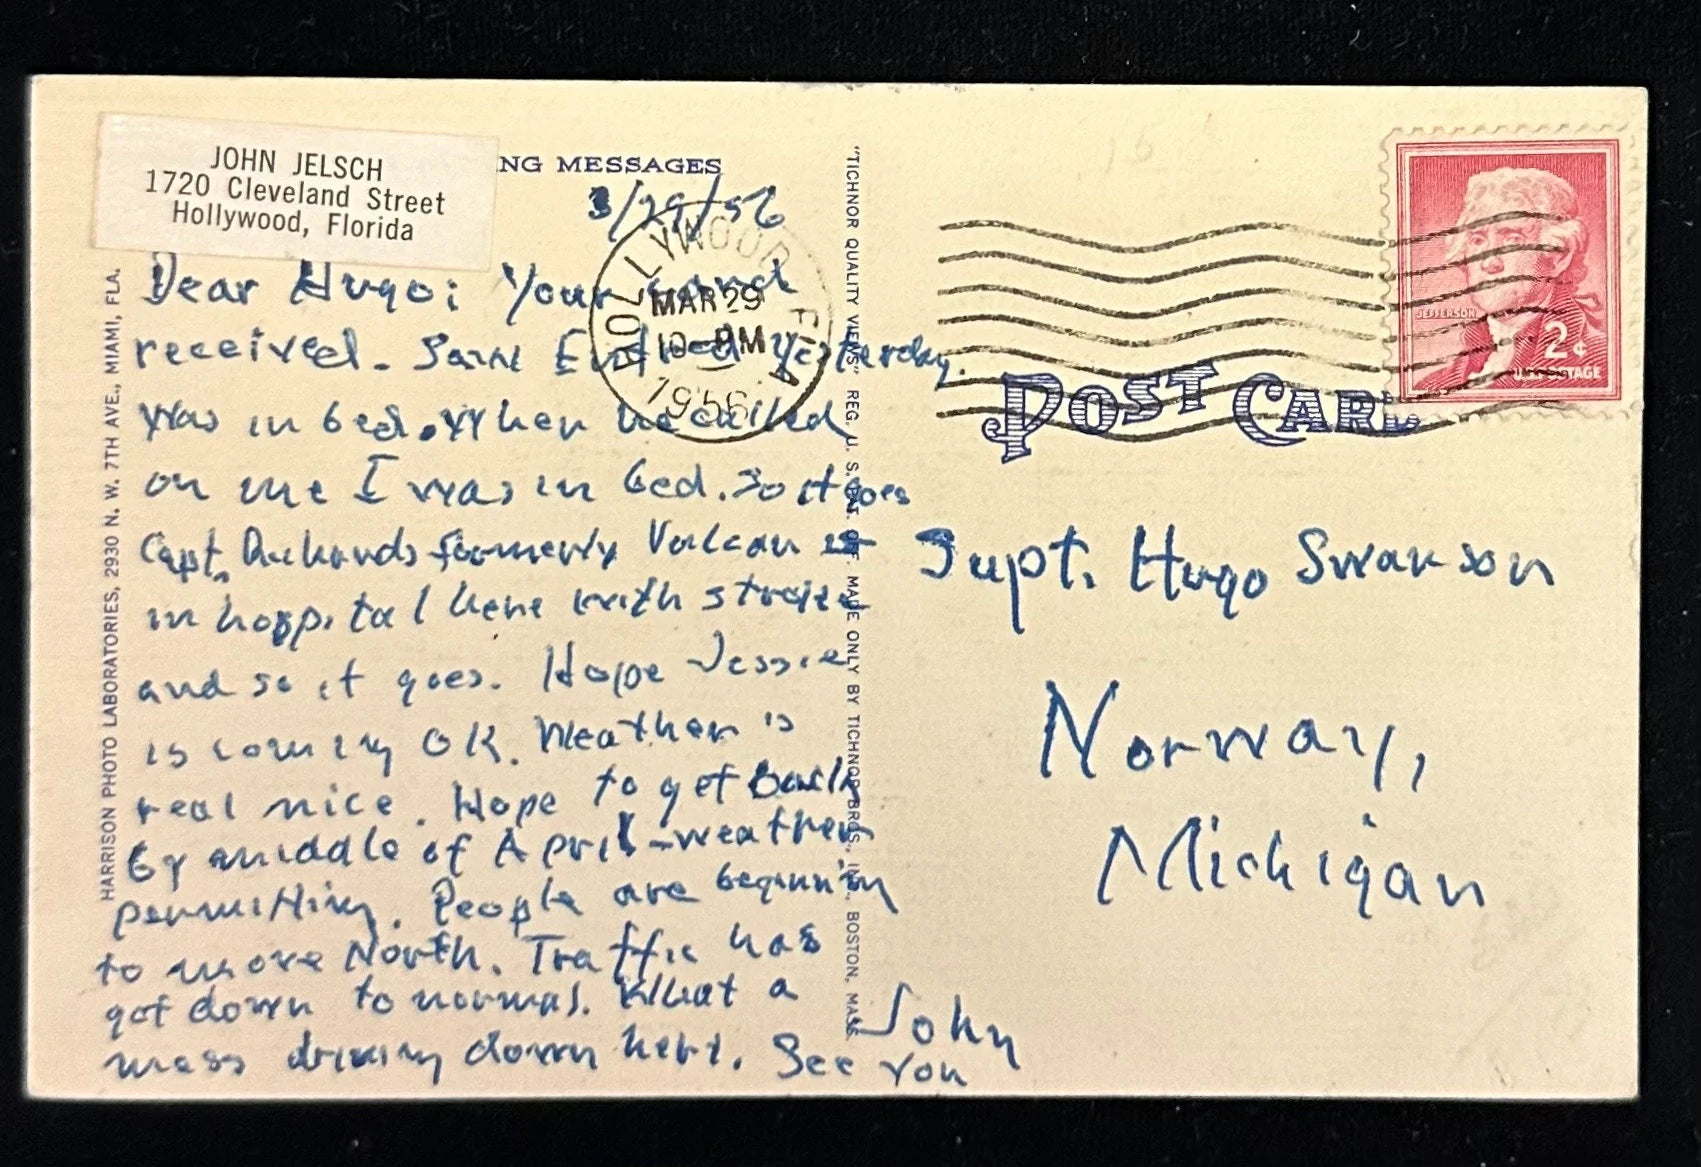 JOHN JELSCH
1720 Cleveland Street
Hollywood, Florida
NG MESSAGES
3/29/56
HOLLYWOOD FLA
MAR 29
10 PM
1956
Dear Hugo: Your card
received. Saw yesterday.
Was in bed. When he called
on me I was in bed. So it goes
Capt. formerly Vulcan is
in hospital here with
and so it goes. Hope Jessie
is coming OK. Weather is
real nice. Hope to get back
by middle of April - weather
permitting. People are beginnin
to move North. Traffic has
got down to normal. What a
mess driving down here. See you
John
HARRISON PHOTO LABORATORIES, 2930 N. W. 7TH AVE., MIAMI, FLA.
"TICHNOR QUALITY VIEWS" REG. U. S. PAT. OFF. MADE ONLY BY TICHNOR BROS., INC., BOSTON, MASS.
POST CARD
JEFFERSON
2¢
U.S. POSTAGE
Supt. Hugo Swanson
Norway,
Michigan